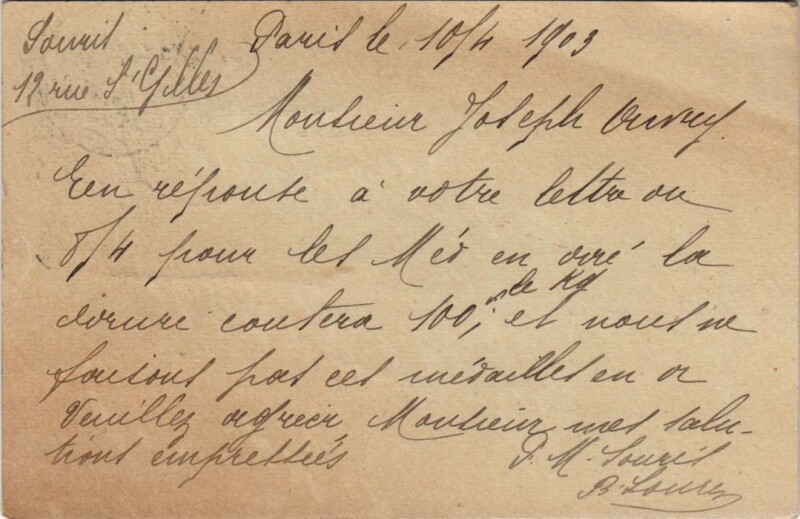 Souris
12 rue St Gilles
Paris le 10/4 1903
Monsieur Joseph
En réponse à votre lettre du
8/4 pour les Méd en doré la
dorure coutera 100, le Kg et nous ne
faisons pas ces médailles en or
Veuillez agréer Monsieur mes salu-
tions empressées
P. M. Souris
B. Souris